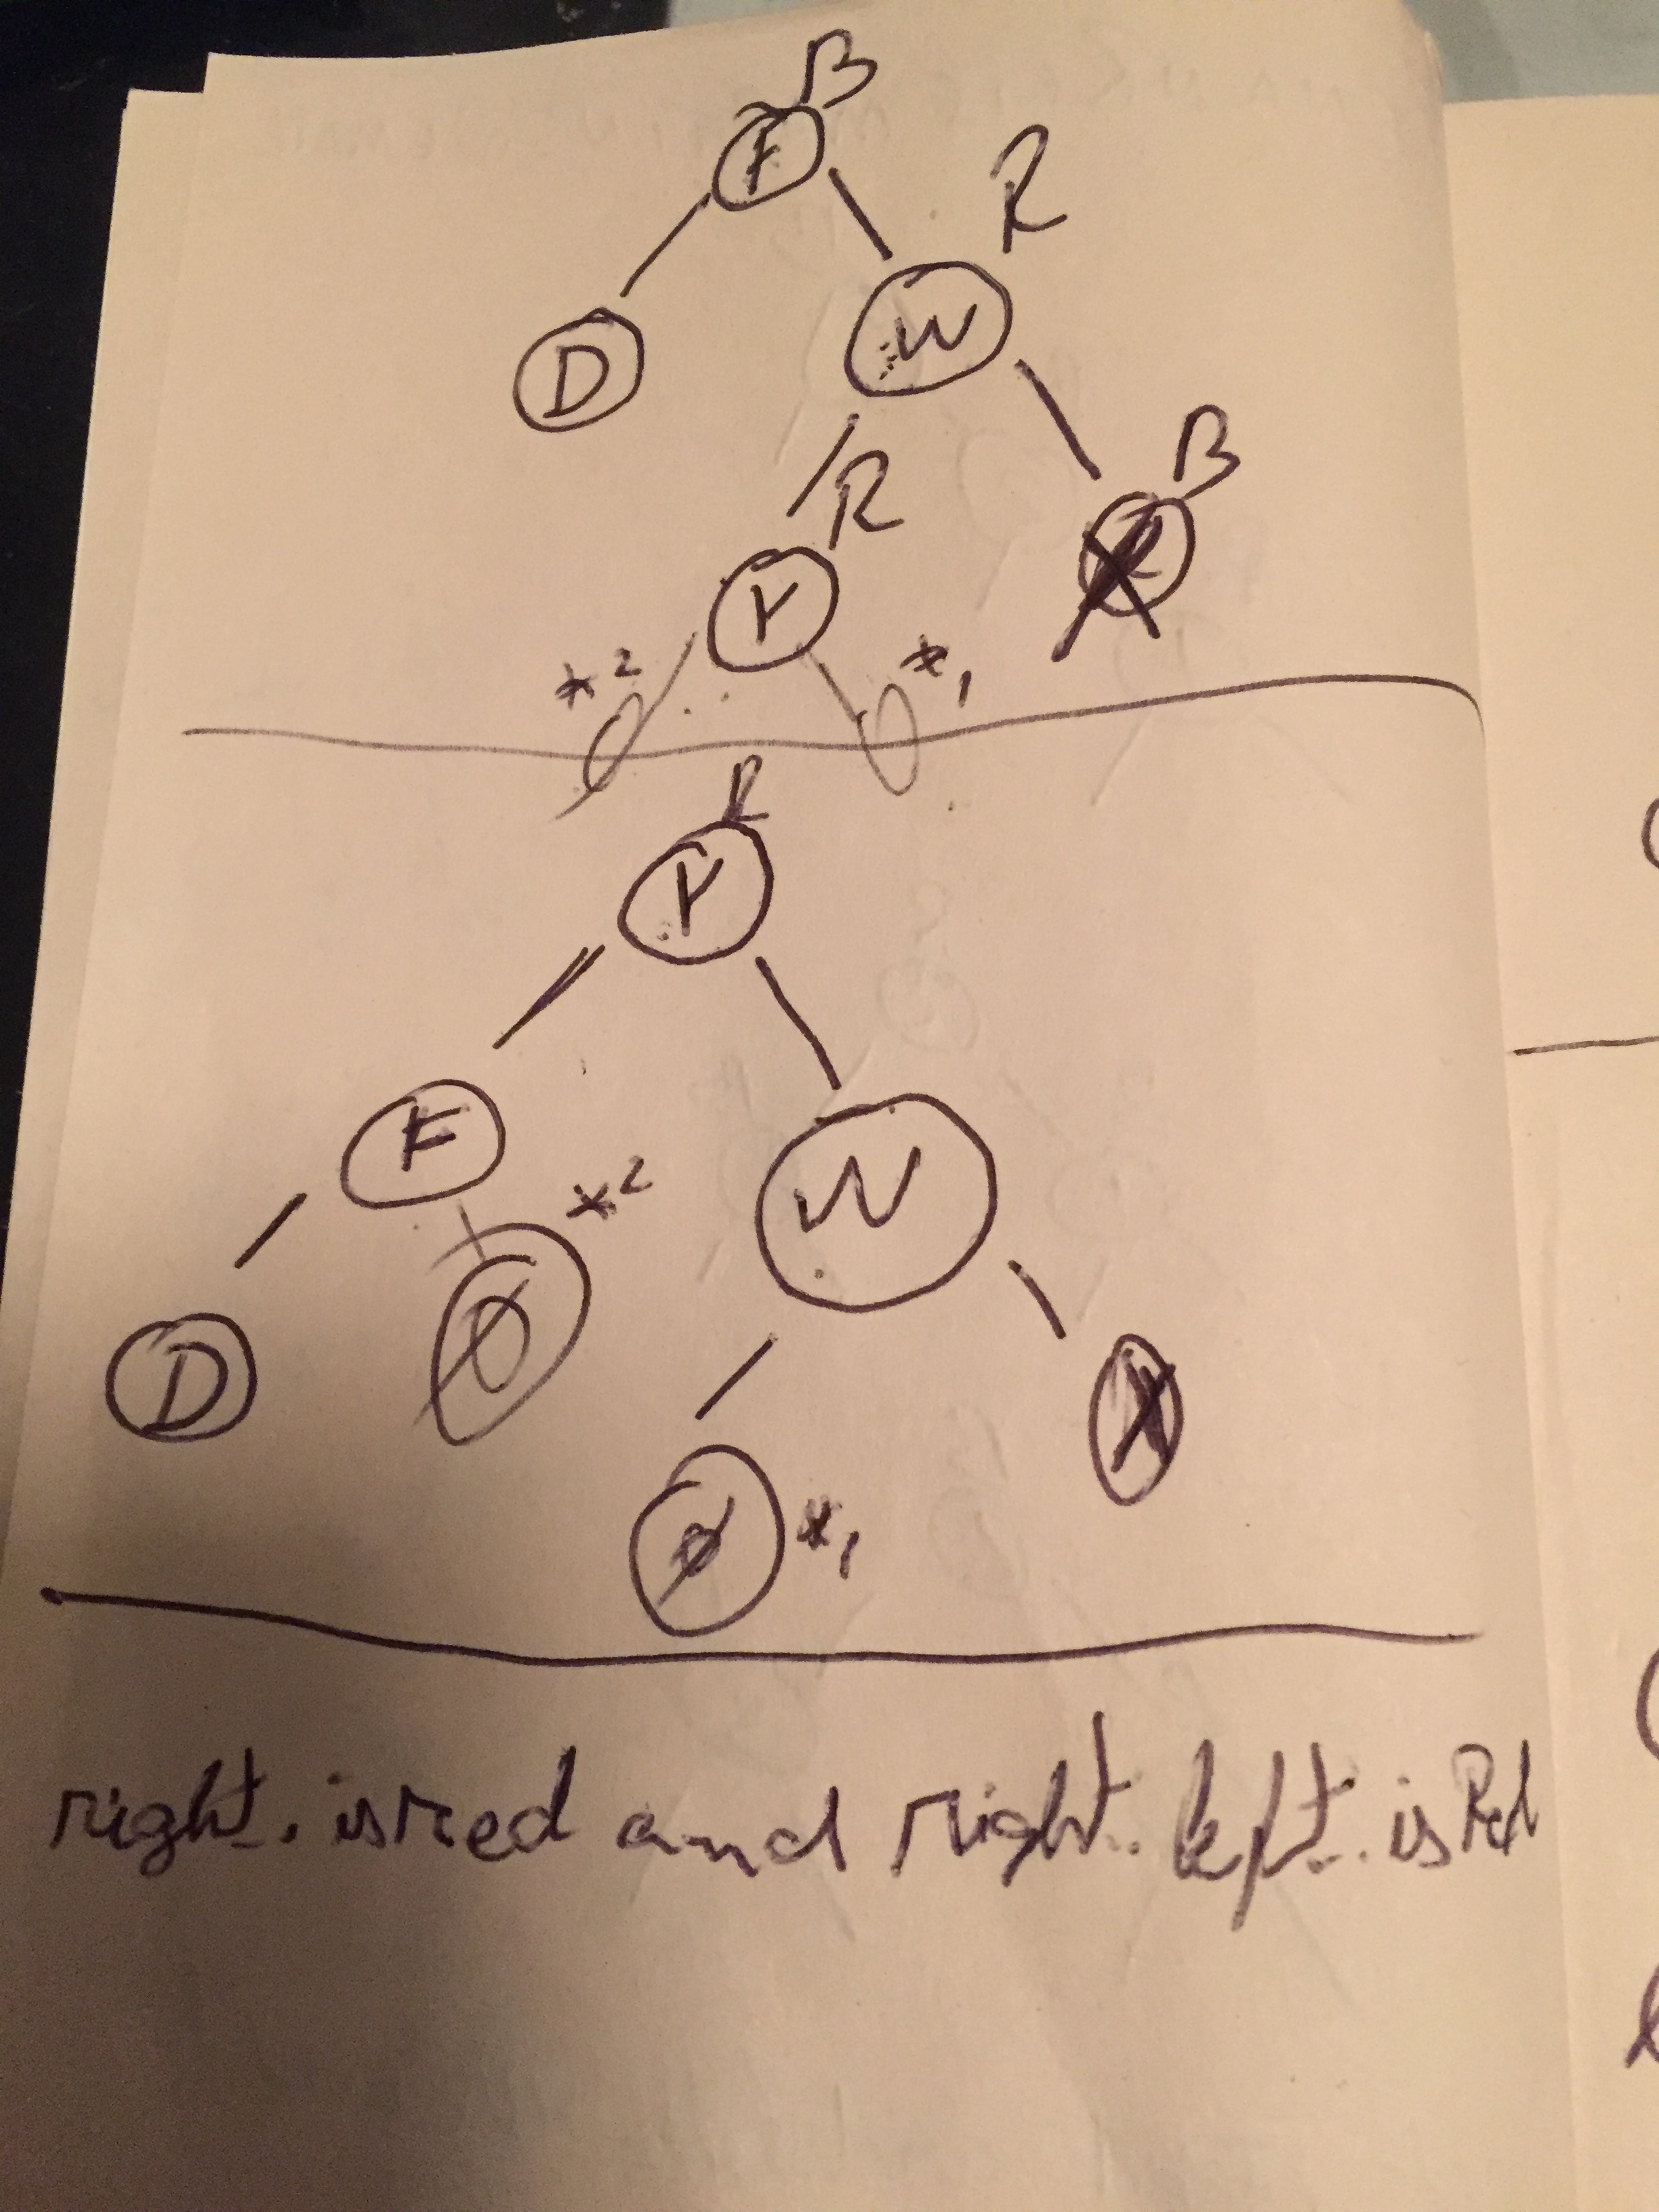 B
F
R
W
D
B
R
Y
*2
*1
R
Y
F
*2
W
D
*1
right. isred and right. left. is Red